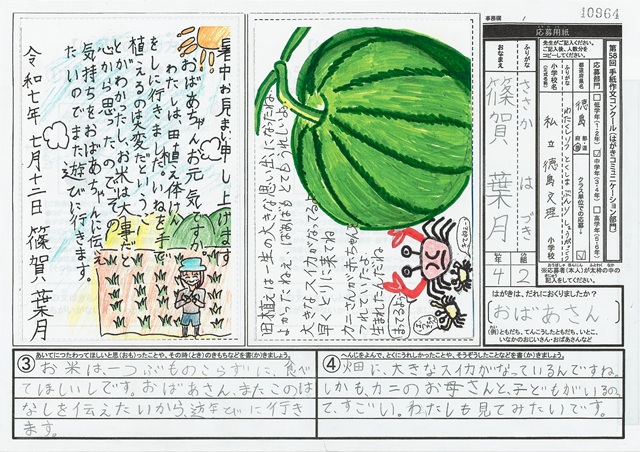 事務欄
10964
暑中お見まい申し上げます
おばあちゃんお元気ですか。
わたしは、田植え体けん
をしに行きました。いねを手で
植えるのは大変だということ
とがわかったし、お米は大事だと
心から思ったのです。その
気持ちをおばあちゃんに伝え
たいのでまた遊びに行きます。
令和七年七月十二日 篠賀葉月
田植は一生の大きな思い出になったね。
よかったねえ、ばあばもとてもうれしいよ。
大きなスイカがなってるよ
早くとりに来てね
カニさんが赤ちゃんを
つれていたよ。
生まれたんだね
まってるよ
応募用紙
先生がご記入ください。
ご記入後、人数分を
コピーしてください。
第58回 手紙作文コンクール〈はがきコミュニケーション部門〉
応募部門
低学年(1・2年)
中学年(3・4年)
高学年(5・6年)
都道府県名
徳島
クラス単位での応募
ふりがな
わたくしりつ とくしまぶんりしょうがっこう
小学校名
(正式名称)
私立徳島文理
小学校
ふりがな
ささか はづき
おなまえ
篠賀 葉月
4年
2組
※応募者(本人)が太枠の中の
にご記入ください。
はがきは、だれにおくりましたか?
おばあさん
(例)ともだち、てんこうしたともだち、いとこ、
いなかのおじいさん・おばあさんなど
③
あいてにつたわってほしいと思(おも)ったことや、その時(とき)のきもちなどを書(か)きましょう。
お米は、一つぶものこらずに、食べ
てほしいしです。おばあさん、またこのは
なしを伝えたいから、遊びに行き
ます。
④
へんじをよんで、とくにうれしかったことや、そうぞうしたことなどを書(か)きましょう。
畑に、大きなスイカがなっているんですね。
しかも、カニのお母さんと、子どもがいるの
で、すごい。わたしも見てみたいです。